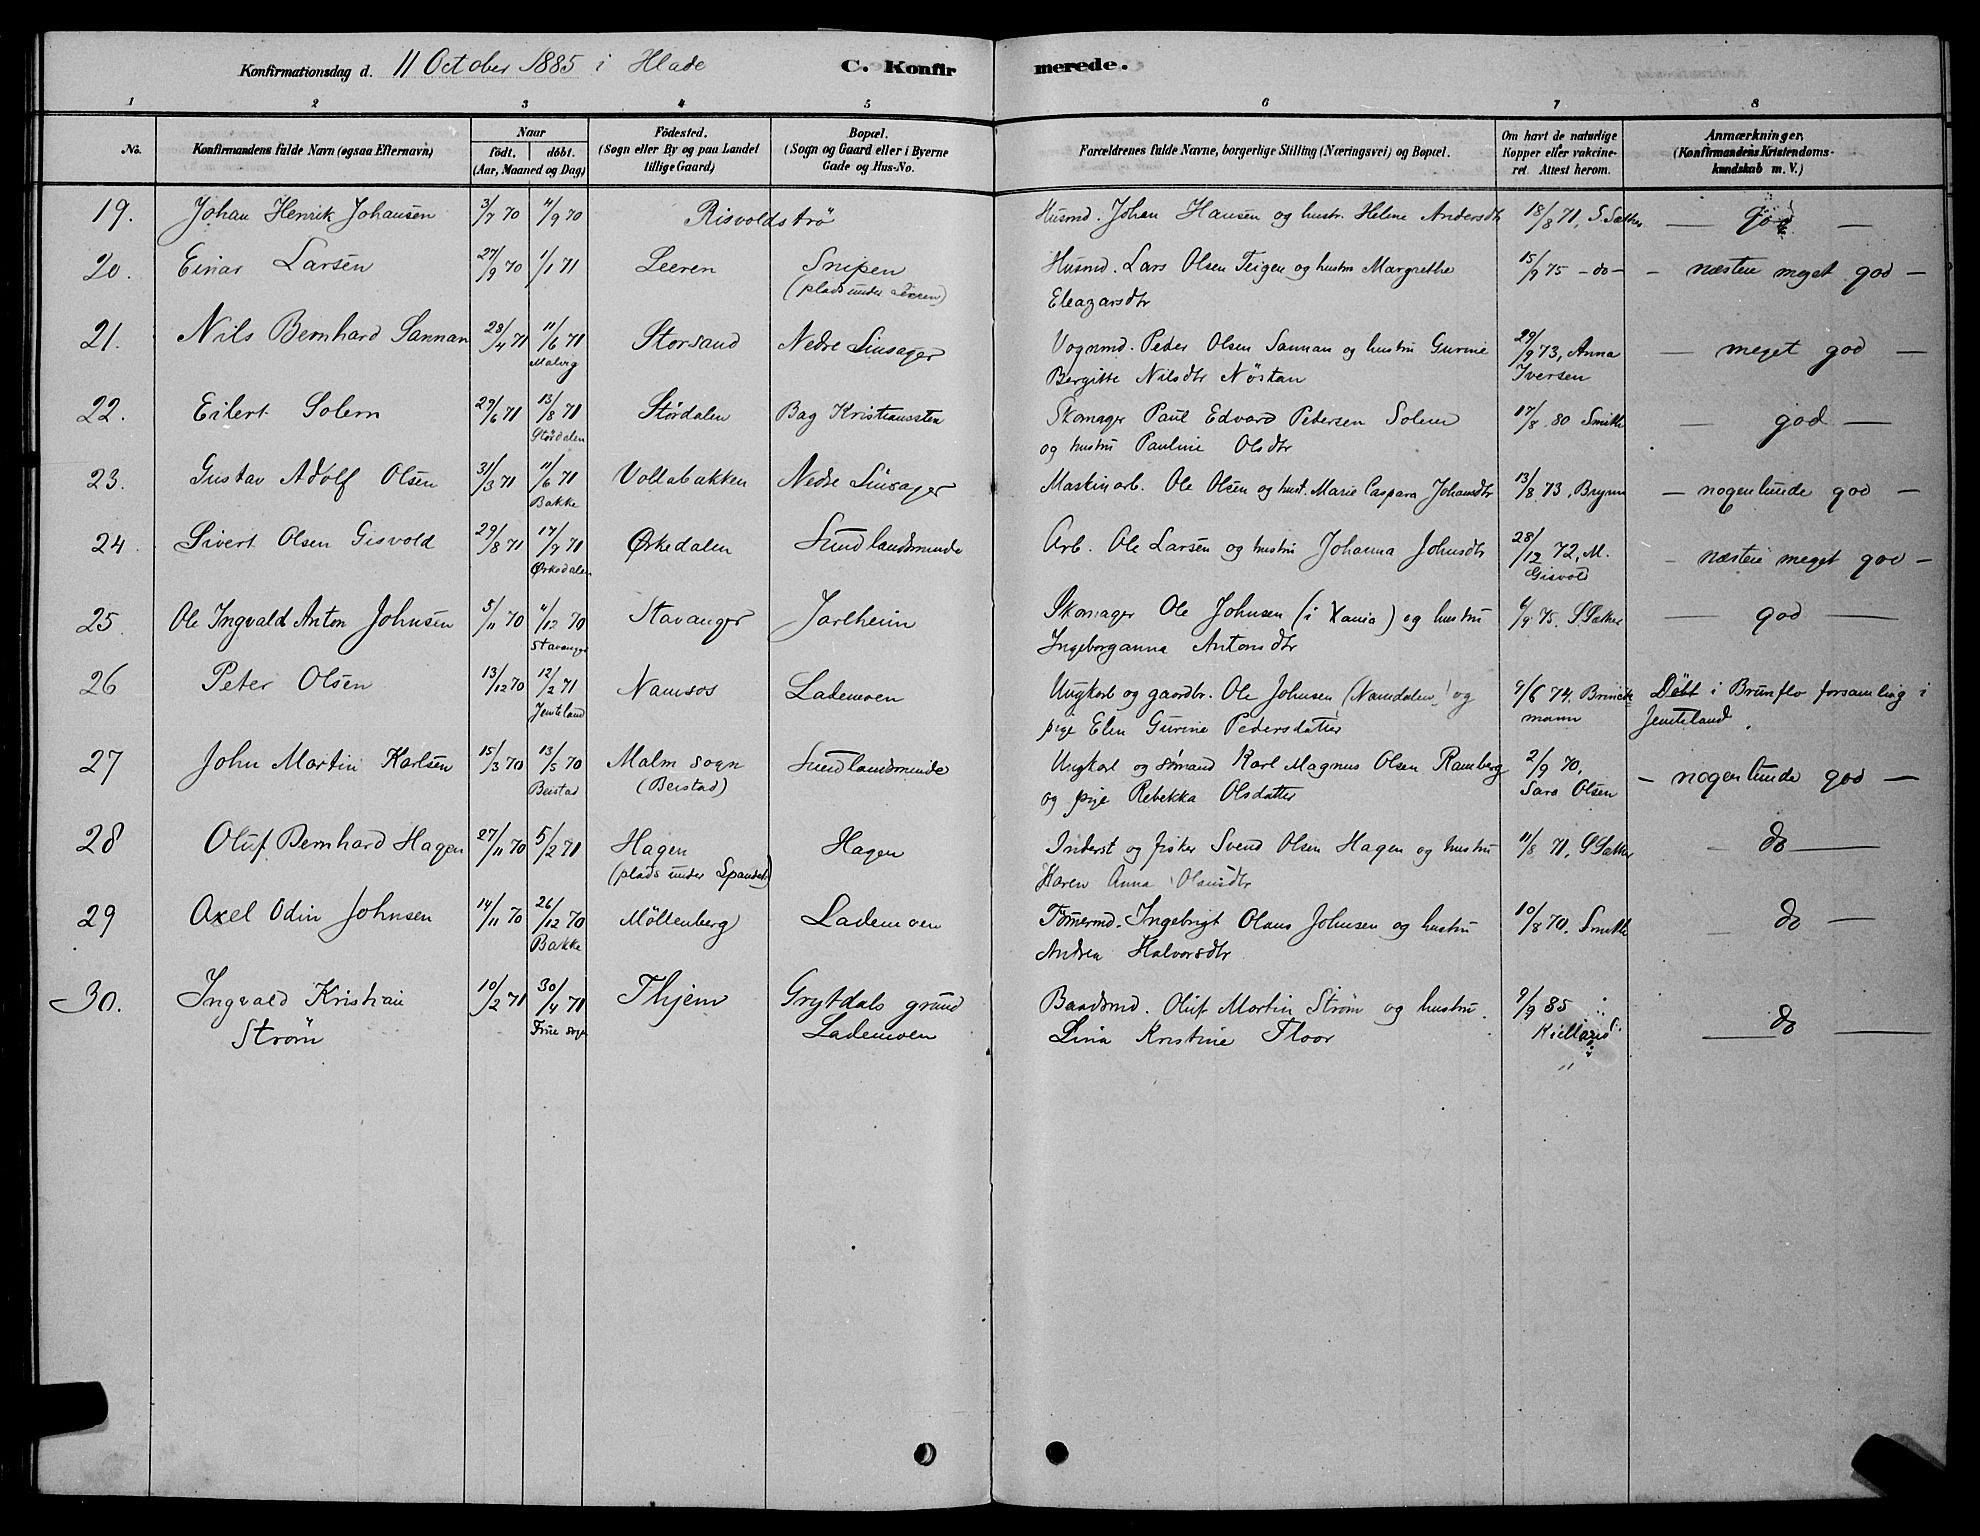 Konfirmationsdag d. 11 October 1885 i Hlade C. Konfirmerede.
1 2 3 4 5 6 7 8
No. Konfirmandens fulde Navn (ogsaa Efternavn) Naar födt, döbt. (Aar, Maaned og Dag) Födested. (Sogn eller By og paa Landet tillige Gaard) Bopæl. (Sogn og Gaard eller i Byerne Gade og Hus-No. Forældrenes fulde Navne, borgerlige Stilling (Næringsvei) og Bopæl. Om havt de naturlige Kopper eller vakcineret. Attest herom. Anmærkninger. (Konfirmandens Kristendomskundskab m. V.)
19. Johan Henrik Johansen 3/7 70 11/9 70 Risvoldströ Husmd. Johan Hansen og hustr. Helene Andersdtr 18/8 71, S. Sæther — god —
20. Einar Larsen 27/9 70 1/1 71 Leeren Snipen Husmd. Lars Olsen Teigen og hustru Margrethe 15/9 75 - do - - næsten meget god -
(plads under Leeren) Eleazarsdtr
21. Nils Bernhard Sannan 28/4 71 11/6 71 Storsand Nedre Linsager Vognmd. Peder Olsen Sannan og hustru Gurine 29/9 73, Anna — meget god —
Malvig Bergitte Nilsdtr Nöstan Iversen
22. Eilert Solem 29/6 71 13/8 71 Stördalen Bag Kristianssten Skomager Paul Edvard Pedersen Solem 17/8 80 Smith — god —
Stördalen og hustru Pauline Olsdtr
23. Gustav Adolf Olsen 31/3 71 11/6 71 Voldabakken Nedre Linsager Maskinarb. Ole Olsen og hust. Marie Caspara Johansdtr 13/8 73, Brynn — nogenlunde god —
Bakke
24. Sivert Olsen Gisvold 29/8 71 17/9 71 Ørkedalen Sundlandsminde Arb. Ole Larsen og hustru Johanna Johnsdtr 28/12 72, M. - næsten meget god -
Ørkedalen Gisvold
25. Ole Ingvald Anton Johnsen 5/11 70 11/12 70 Stavanger Jarlheim Skomager Ole Johnsen (i Xania) og hustru 6/9 75. S. Sæther — god —
Stavanger Ingeborganna Antonsdtr
26 Peter Olsen 13/12 70 12/2 71 Namsos Lademoen Ungkarl og gaardbr. Ole Johnsen (Namdalen) og 9/6 74. Brinck- Döbt i Brunflo forsamling i
Jemteland pige Elen Gurine Pedersdatter mann Jemteland.
27 John Martin Karlsen 15/3 70 13/5 70 Malm sogn Sundlandsminde Ungkarl og sömand Karl Magnus Olsen Ramberg 2/9 70, - nogenlunde god —
Beistad (Beistad) og pige Rebekka Olsdatter Sara Olsen
28 Oluf Bernhard Hagen 27/11 70 5/2 71 Hagen Hagen Inderst og fisker Svend Olsen Hagen og hustru 11/8 71, S Sæther — do —
(plads under Spandet) Karen Anna Olausdtr
29 Axel Odin Johnsen 14/11 70 26/12 70 Möllenberg Lademoen Tömermd. Ingebrigt Olaus Johnsen og hustru 10/8 70. Smith — do —
Bakke Andrea Halvorsdtr.
30. Ingvald Kristian 10/2 71 30/4 71 Thjem Grytdals grund Baadsmd. Oluf Martin Ström og hustru 9/9 85 — do —
Ström Frue sogn Lademoen Lina Kristine Floor Kielland